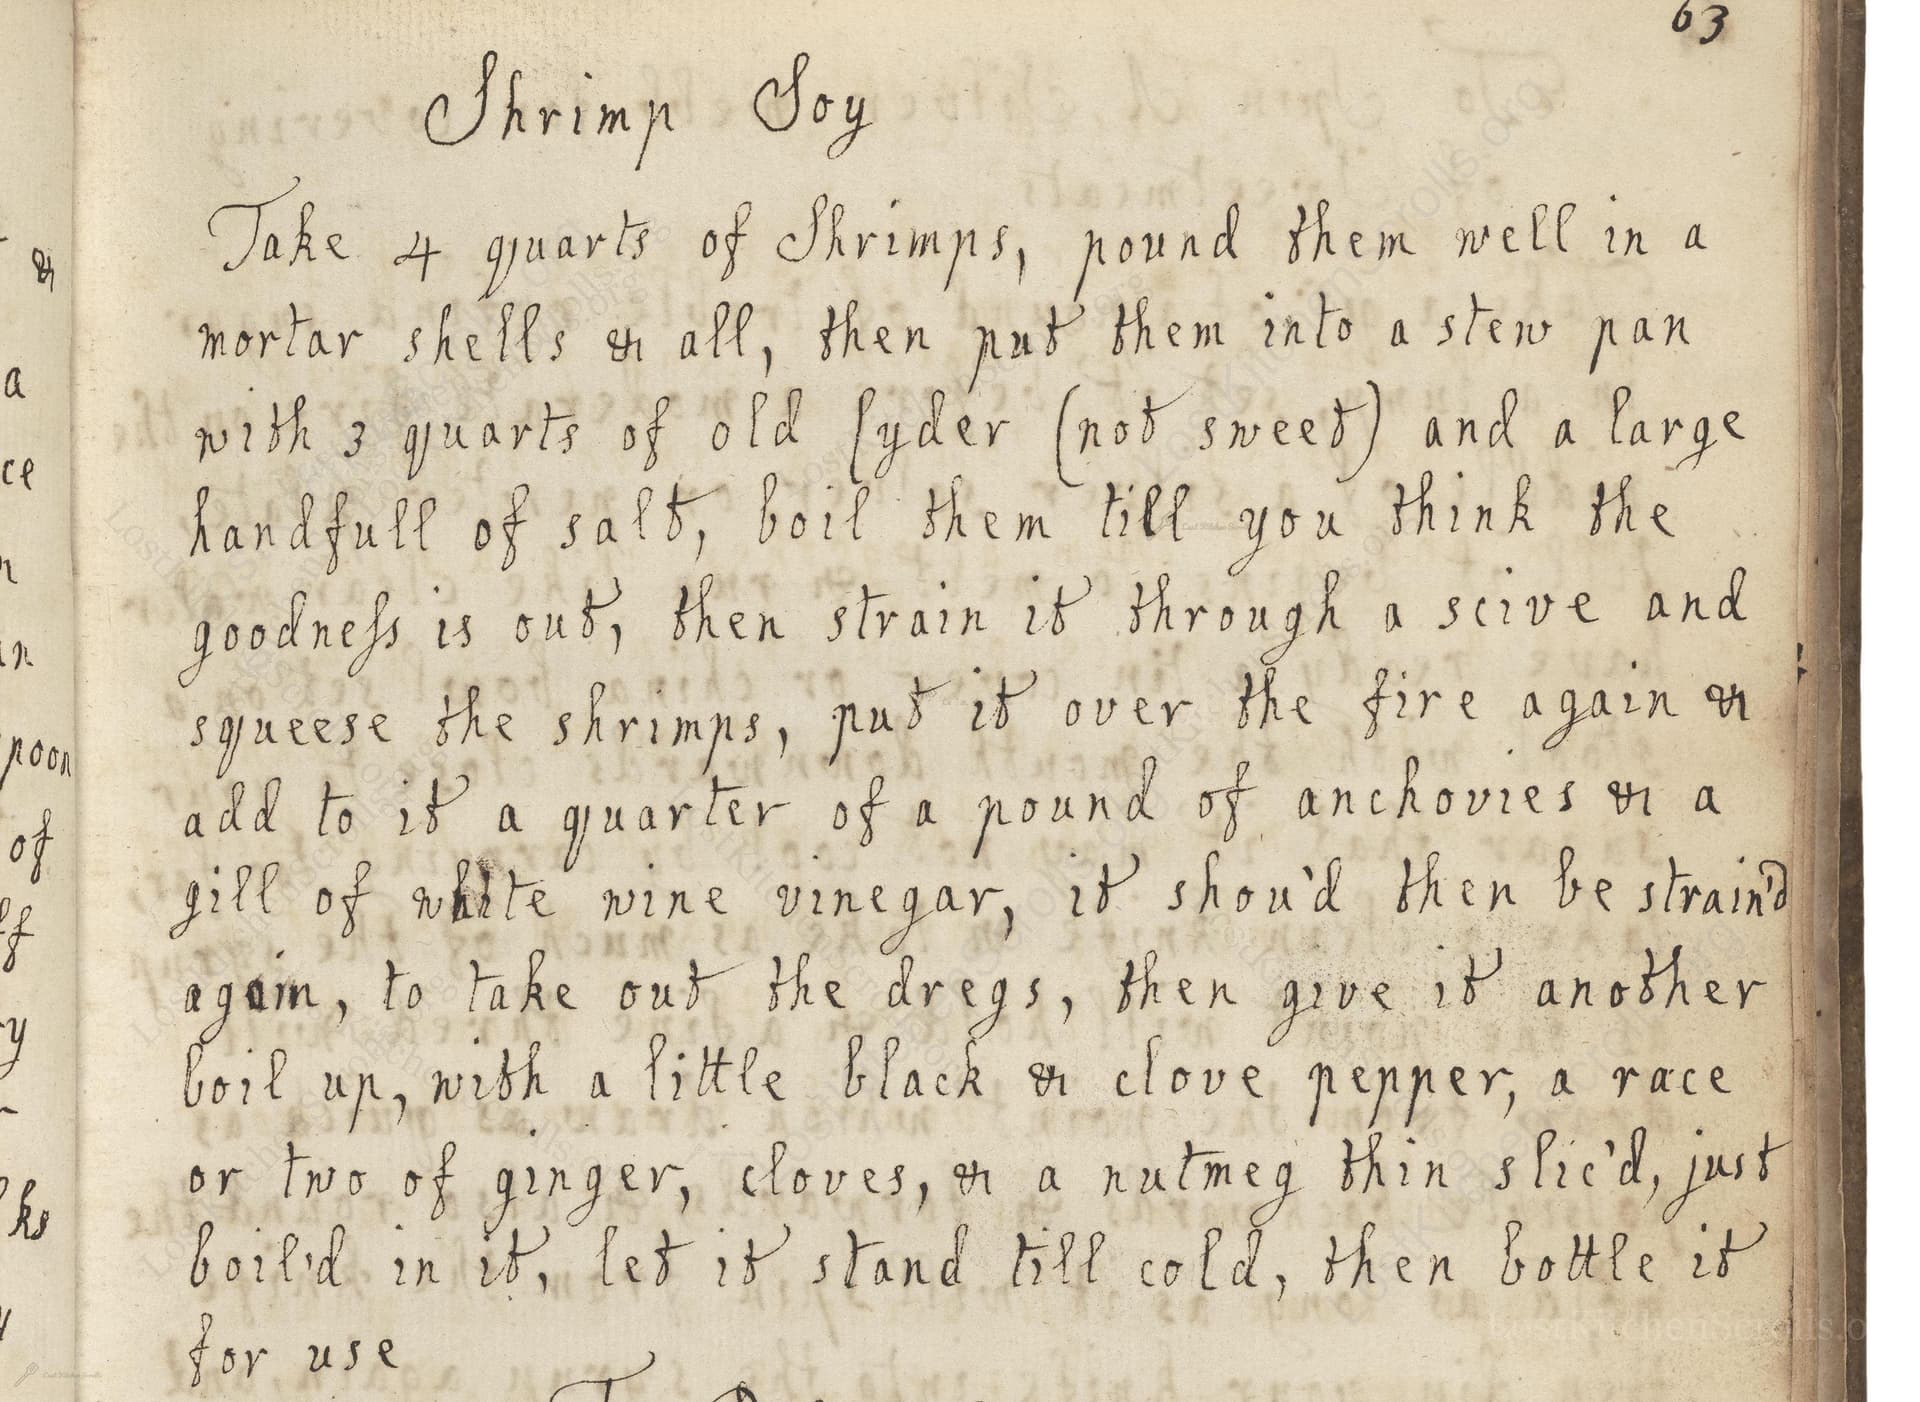 63
Shrimp Soy
Take 4 quarts of Shrimps, pound them well in a
mortar shells & all, then put them into a stew pan
with 3 quarts of old Cyder (not sweet) and a large
handfull of salt, boil them till you think the
goodness is out, then strain it through a scive and
squeese the shrimps, put it over the fire again &
add to it a quarter of a pound of anchovies & a
gill of white wine vinegar, it shou'd then be strain'd
again, to take out the dregs, then give it another
boil up, with a little black & clove pepper, a race
or two of ginger, cloves, & a nutmeg thin slic'd, just
boil'd in it, let it stand till cold, then bottle it
for use